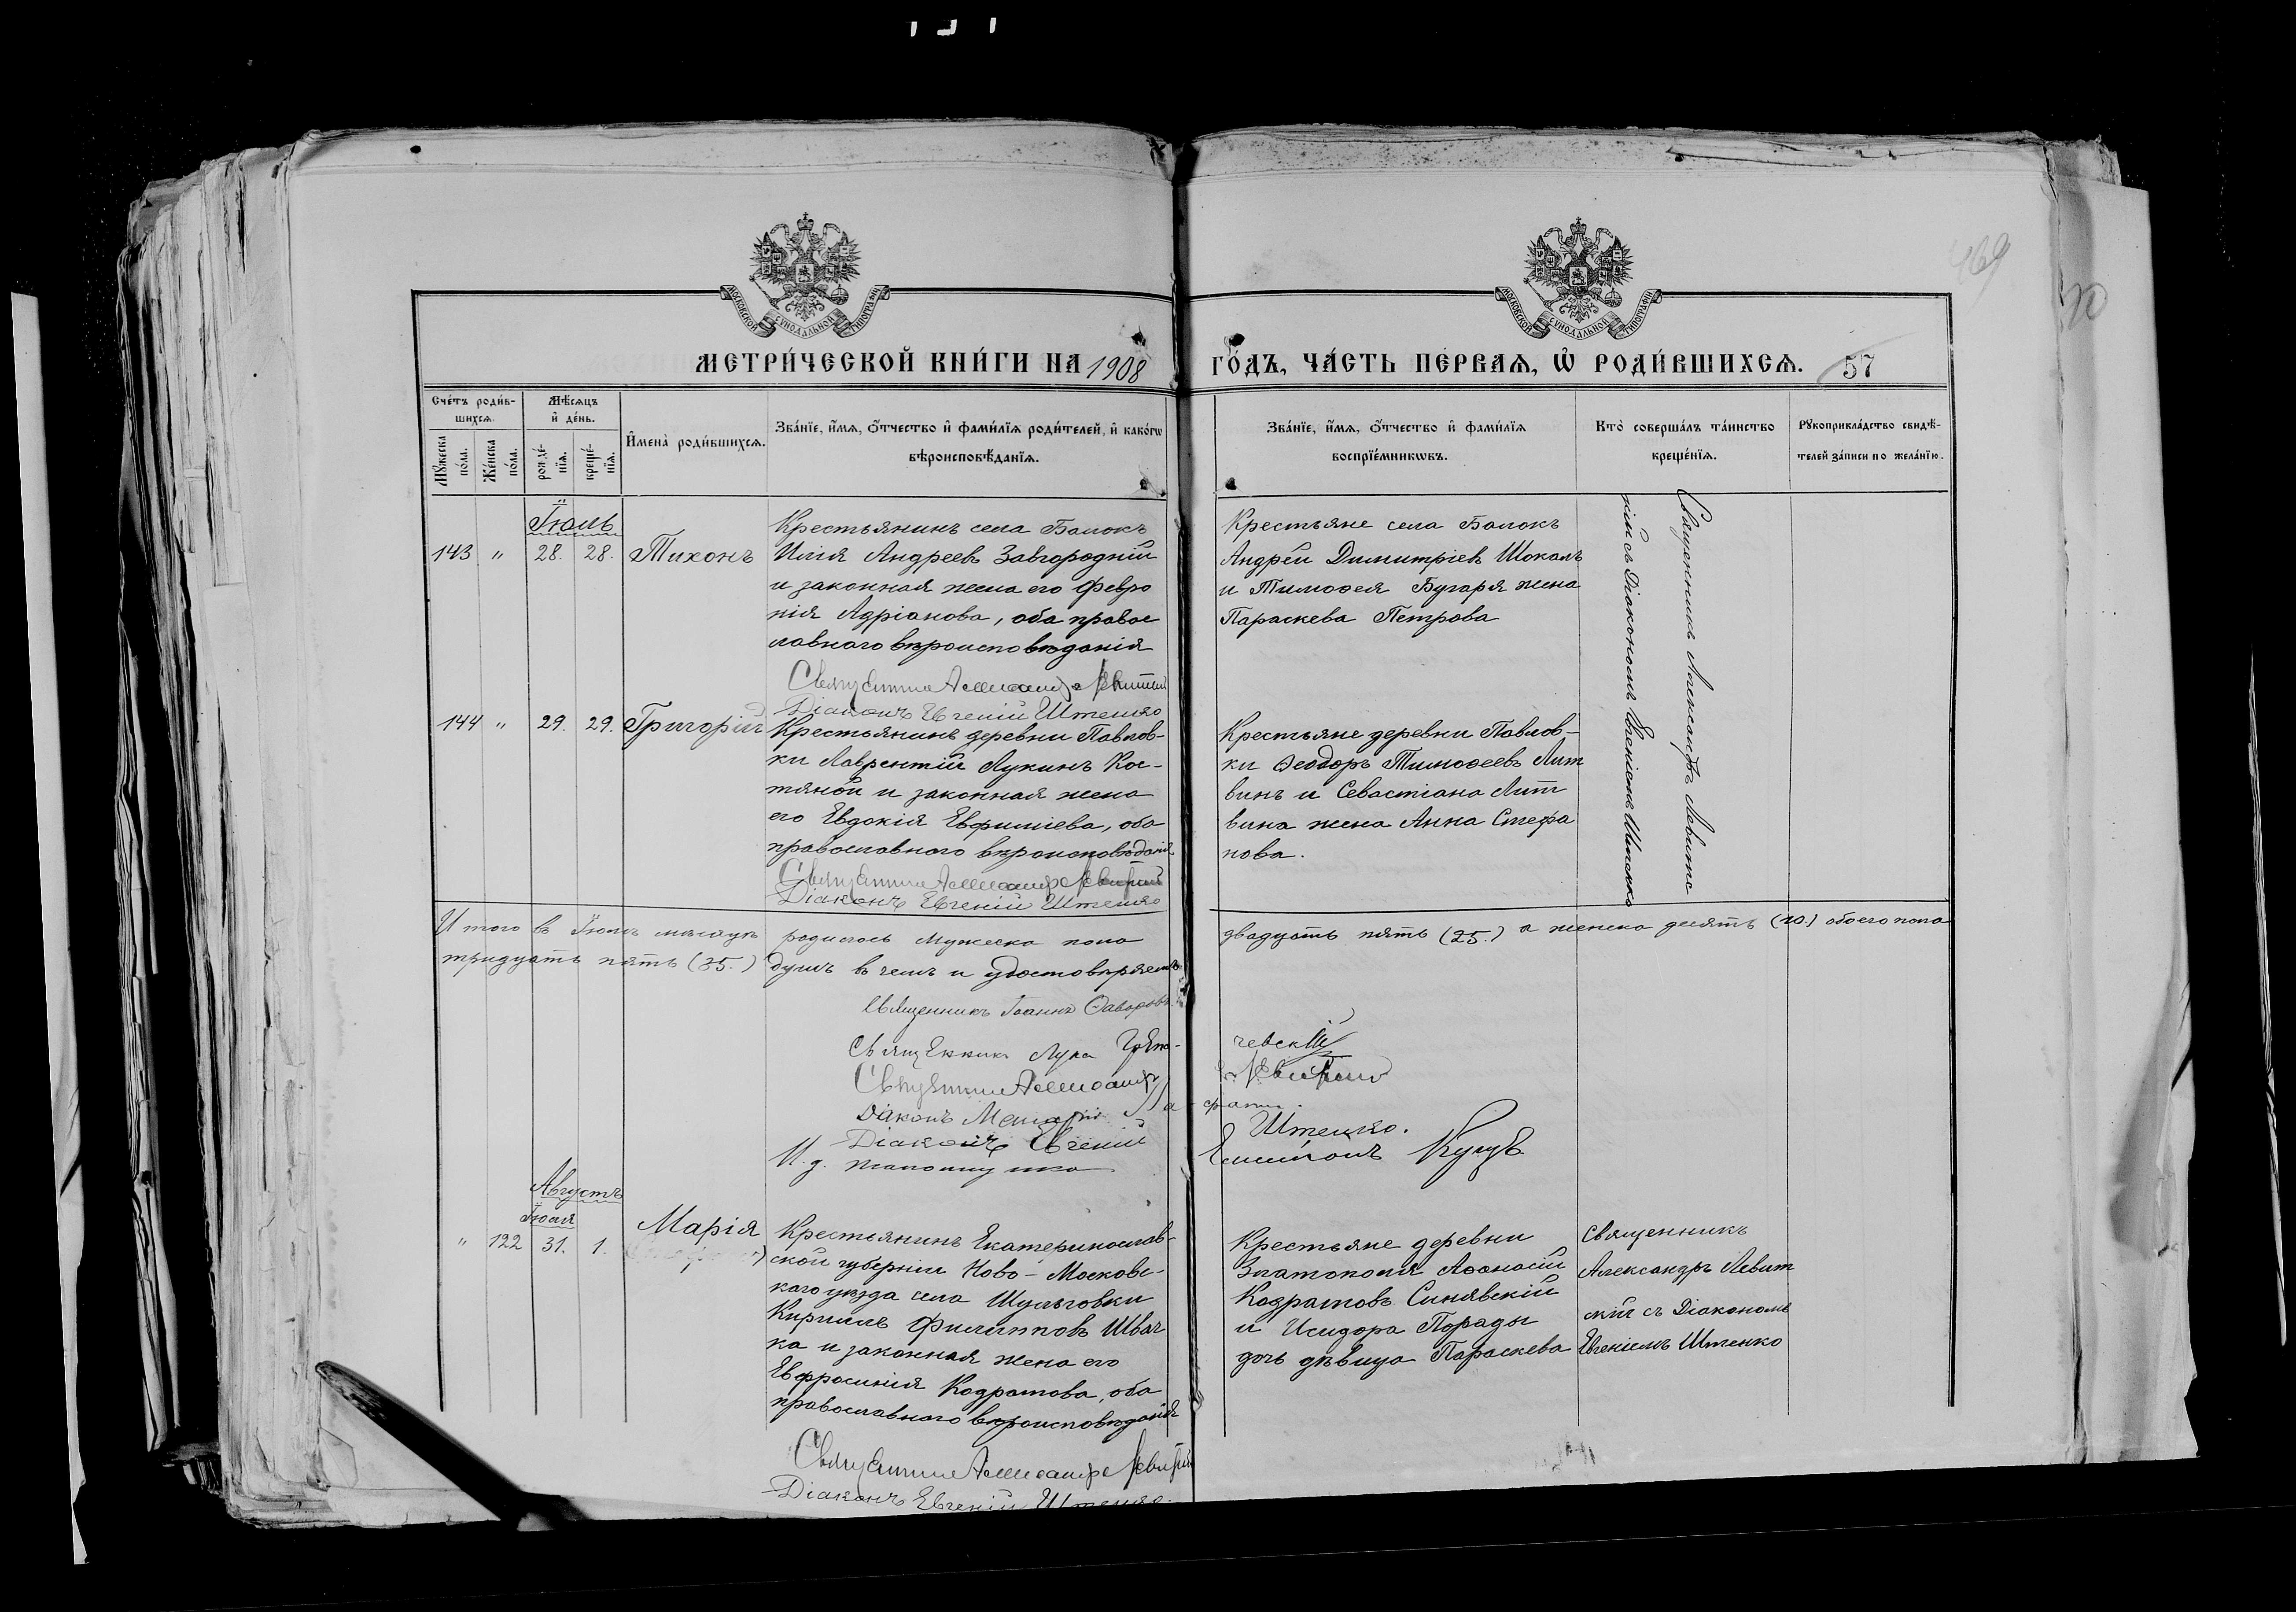 469
20
МОСКОВСКОЙ СѴНОДАЛЬНОЙ ТИПОГРАФІИ
МОСКОВСКОЙ СѴНОДАЛЬНОЙ ТИПОГРАФІИ
МЕТРИ́ЧЕСКОЙ КНИ́ГИ НА 1908
ГО́ДЪ, ЧА́СТЬ ПЕ́РВАЯ, Ѡ РОДИ́ВШИХСЯ. 57
Сче́тъ роди́в-
шихся.
Мѣ́сяцъ
и҆ де́нь.
Мꙋ́жеска
по́ла.
Же́нска
по́ла.
рожде́-
нїя.
креще́-
нїя.
И҆мена̀ роди́вшихся.
Зва́нїе, и҆́мя, ѻ҆́тчество и҆ фами́лїя роди́телей, и҆ како́гѡ
вѣроисповѣ́данїя.
Зва́нїе, и҆́мя, ѻ҆́тчество и҆ фами́лїя
воспрїе́мникѡвъ.
Кто̀ соверша́лъ та́инство
креще́нїя.
Рꙋкоприкла́дство свидѣ́-
телей за́писи по жела́нїю.
Іюль
143 " 28. 28. Тихонъ
Крестьянинъ села Балокъ
Илія Андреевъ Завгородній
и законная жена его Февро
нія Адріанова, оба правос
лавнаго вѣроисповѣданія
Священникъ Александръ Левитскій
Діаконъ Евгеній Штенко
Крестьяне села Балокъ
Андрей Димитріевъ Шокалъ
и Тимоѳея Бугаря жена
Параскева Петрова
Священникъ Александръ Левитс
кій съ Діакономъ Евгеніемъ Штенко
144 " 29. 29. Григорій
Крестьянинъ деревни Павлов-
ки Лаврентій Лукинъ Кос-
тяной и законная жена
его Евдокія Евфиміева, оба
православнаго вѣроисповѣданія
Священникъ Александръ Левитскій
Діаконъ Евгеній Штенко
Крестьяне деревни Павлов-
ки Ѳеодоръ Тимоѳеевъ Лит
винъ и Севастіана Лит
вина жена Анна Стефа
нова.
Итого въ Іюлѣ мѣсяцѣ родилось мужеска пола двадцать пять (25.) а женска десять (10.) обоего пола
тридцать пять (35.) душъ въ чемъ и удостовѣряемъ
Священникъ Іоаннъ
Священникъ Лука чевскій
Священникъ Александръ Левитскій
Діаконъ
Діаконъ Евгеній Штенко.
И. д. псаломщика
Августъ
Іюля
" 122 31. 1. Марія
Крестьянинъ Екатеринослав-
ской губерніи Ново-Московс-
каго уѣзда села Шульговки
Кириллъ Филипповъ Швач
ка и законная жена его
Евфросинія Кодратова, оба
православнаго вѣроисповѣданія
Священникъ Александръ Левитскій
Діаконъ Евгеній Штенко.
Крестьяне деревни
Златополя Аѳанасій
Кодратовъ Синявскій
и Исидора Порады
дочь дѣвица Параскева
Священникъ
Александръ Левит
скій съ Діакономъ
Евгеніемъ Штенко